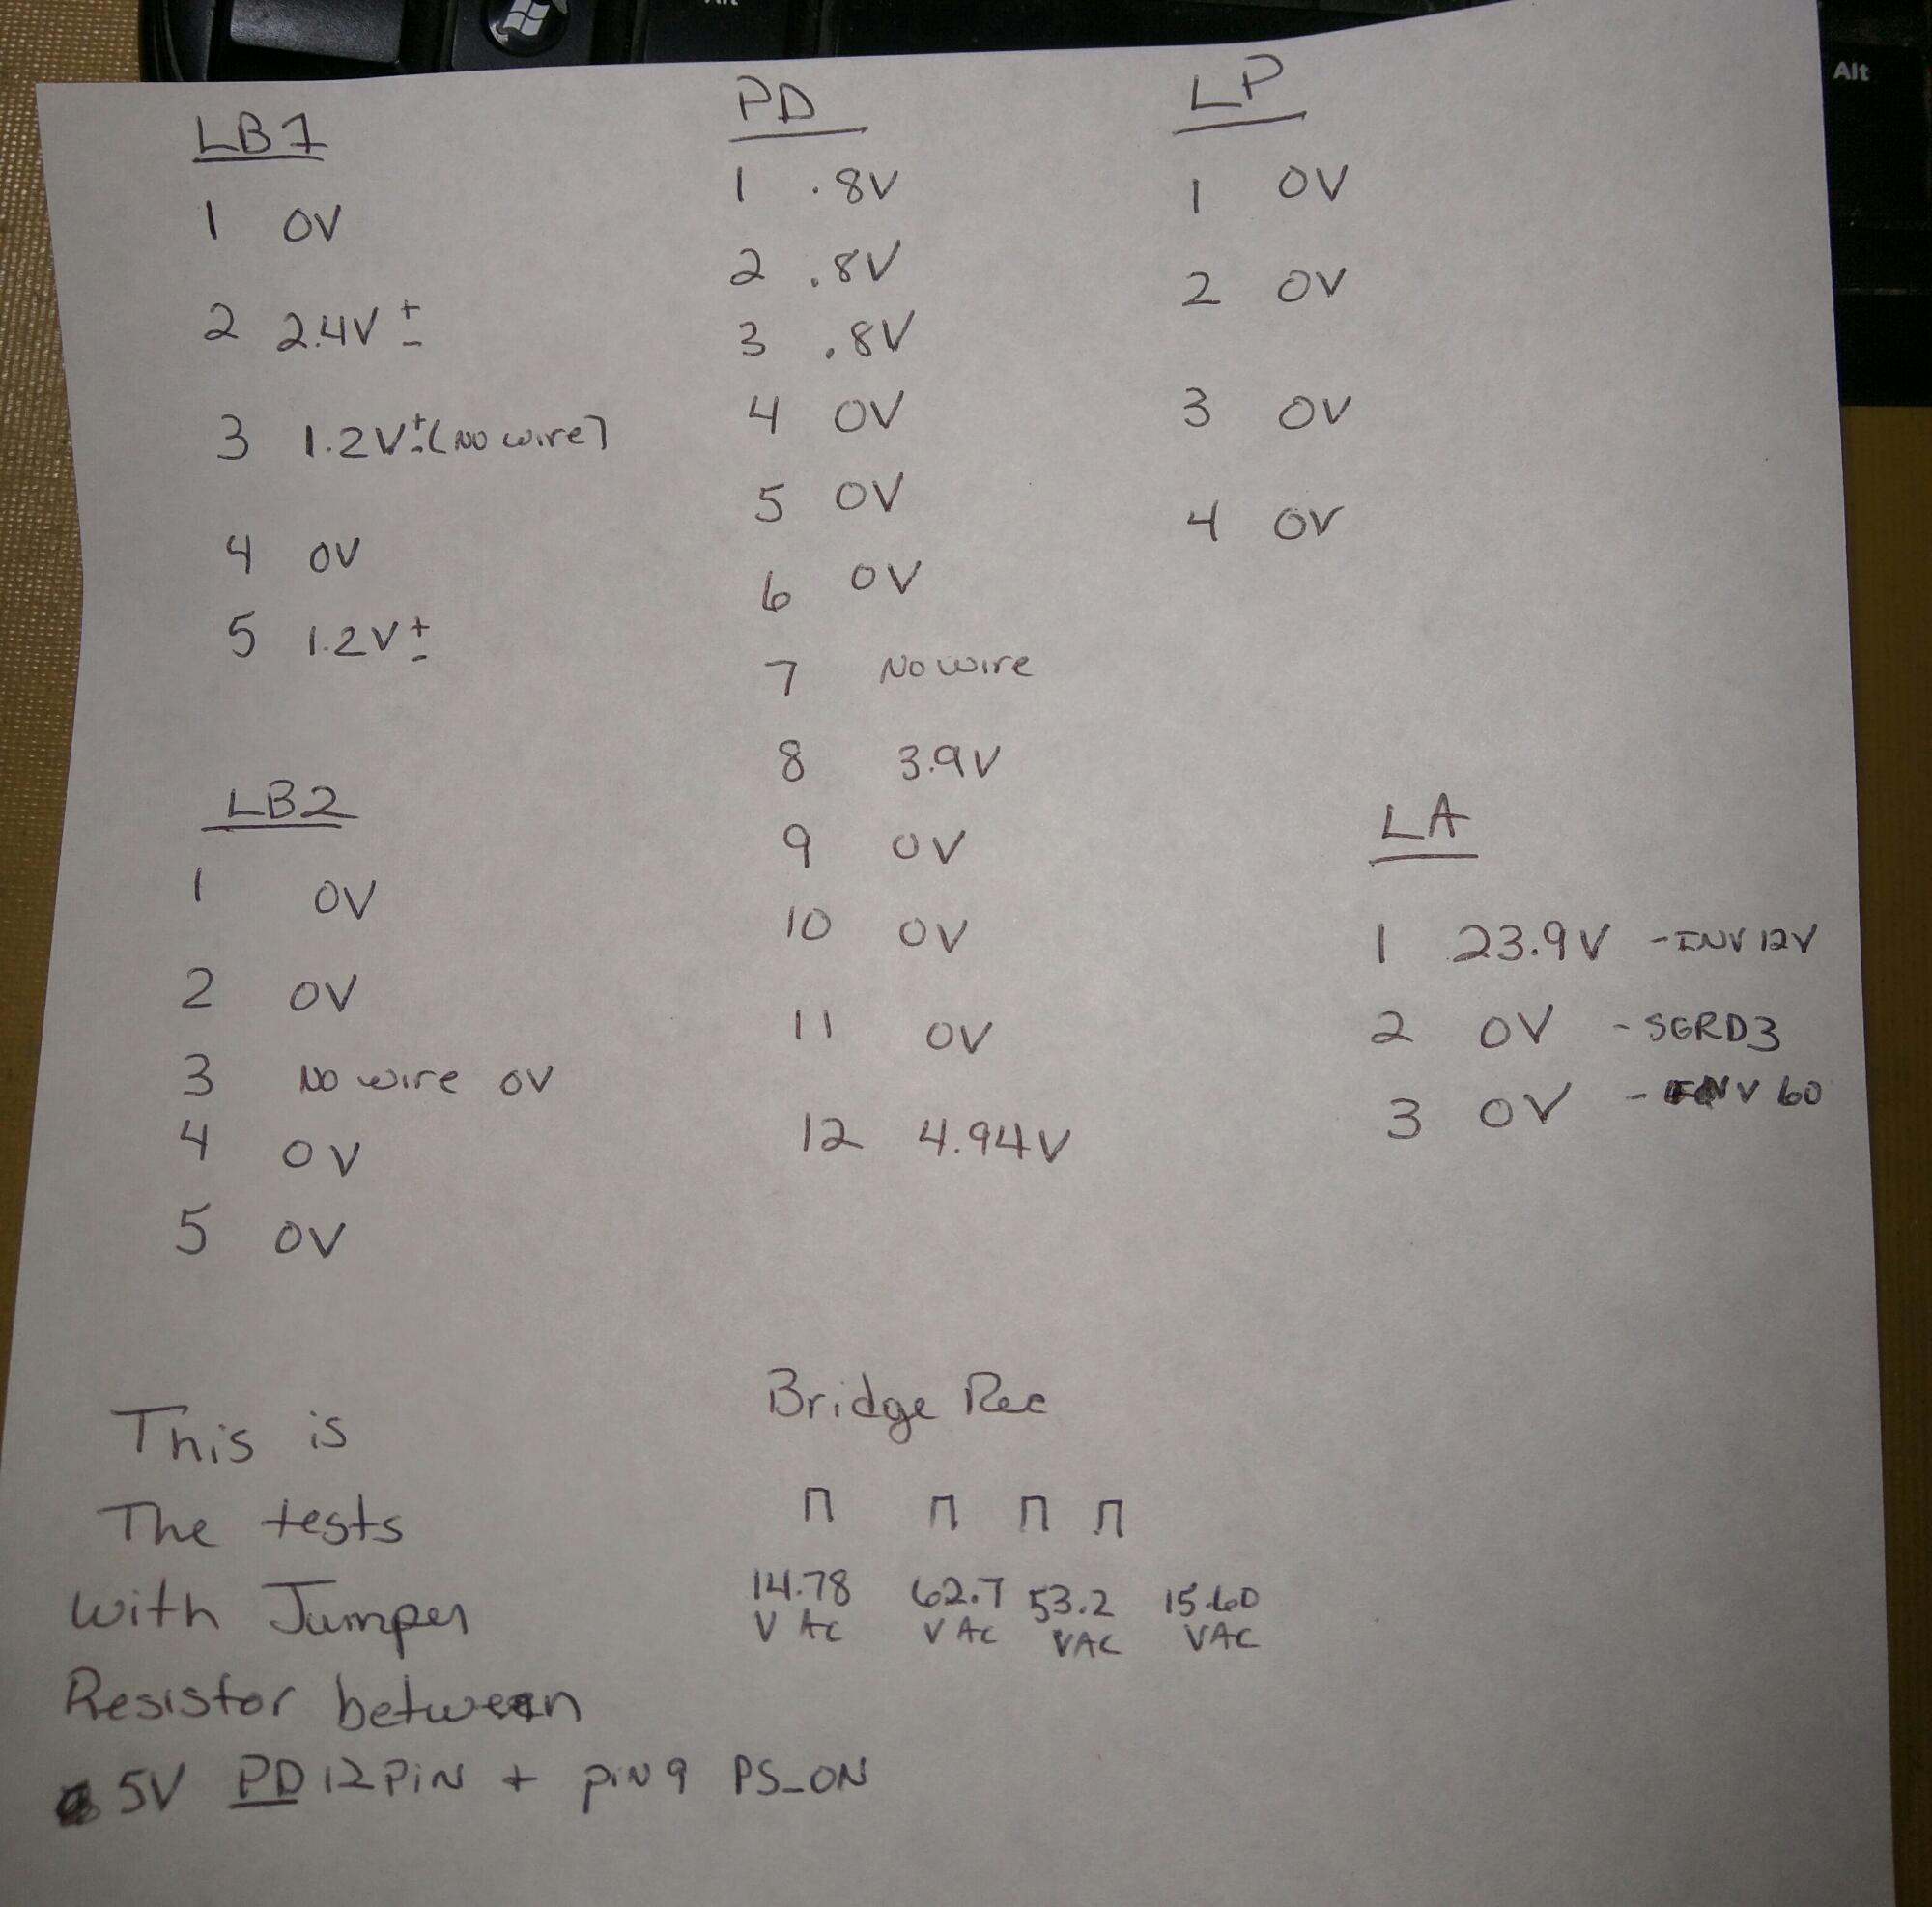 Alt
Alt
LB1
1 0V
2 2.4V ±
3 1.2V± (No wire)
4 0V
5 1.2V ±
LB2
1 0V
2 0V
3 No wire 0V
4 0V
5 0V
PD
1 .8V
2 .8V
3 .8V
4 0V
5 0V
6 0V
7 No wire
8 3.9V
9 0V
10 0V
11 0V
12 4.94V
LP
1 0V
2 0V
3 0V
4 0V
LA
1 23.9V - INV 12V
2 0V - SGRD3
3 0V - INV 60
This is
The tests
with Jumper
Resistor between
5V PD 12 PiN + piN 9 PS_ON
Bridge Rec
14.78 62.7 53.2 15.60
V AC V AC VAC VAC